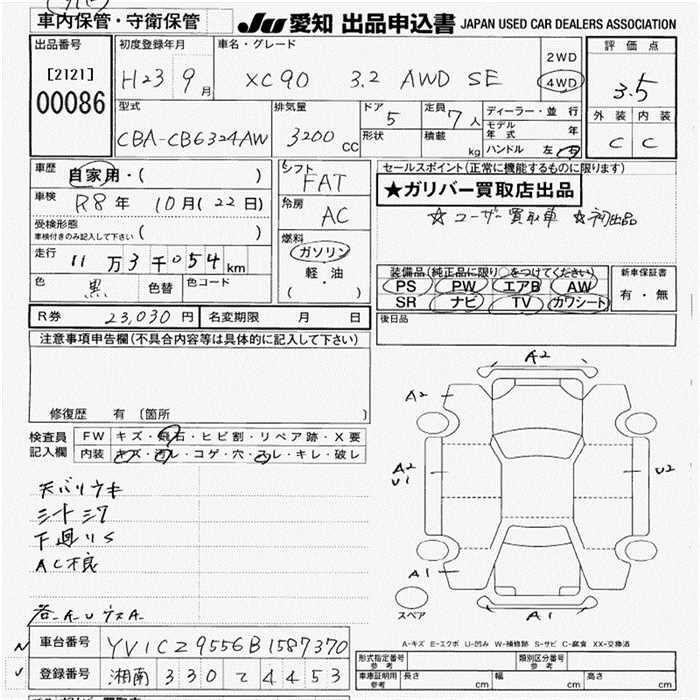 車内保管・守衛保管
JU 愛知 出品申込書 JAPAN USED CAR DEALERS ASSOCIATION
出品番号
[2121]
00086
初度登録年月
H23 9月
車名・グレード
XC90 3.2 AWD SE
2WD
4WD
評価点
3.5
外装 内装
C C
型式
CBA-CB6324AW
排気量
3200cc
ドア
5
形状
定員
7人
積載
kg
ディーラー・並行
モデル年式 年
ハンドル 左・右
車歴
自家用・( )
車検
R8年 10月(22日)
受検形態
車検付きのみ記入して下さい ( )
走行
11万3千054km
色
黒
色替
色コード
シフト
FAT
冷房
AC
燃料
ガソリン
軽・油
( )
セールスポイント(正常に機能するものに限ります)
★ガリバー買取店出品
☆ユーザー買取車 ☆初出品
装備品(純正品に限り○をつけてください)
PS PW エアB AW
SR ナビ TV カワシート
新車保証書
有・無
後日品
R券 23,030円
名変期限 月 日
注意事項申告欄(不具合内容等は具体的に記入して下さい)
修復歴 有 (箇所 )
検査員
記入欄
FW キズ・飛石・ヒビ割・リペア跡・X要
内装 キズ・汚レ・コゲ・穴・スレ・キレ・破レ
天バリウキ
シートシワ
下廻りS
AC不良
各-A-U ウスA-
A2
A2
A2
U1
U2
A1
A1
スペア
A-キズ E-エクボ U-凹み W-補修跡 S-サビ C-腐食 XX-交換済
車台番号 YV1CZ9556B1587370
登録番号 湘南 330 て 4453
形式指定番号
参考
類別区分番号
参考
車庫証明用
参考
長さ cm 幅 cm 高さ cm